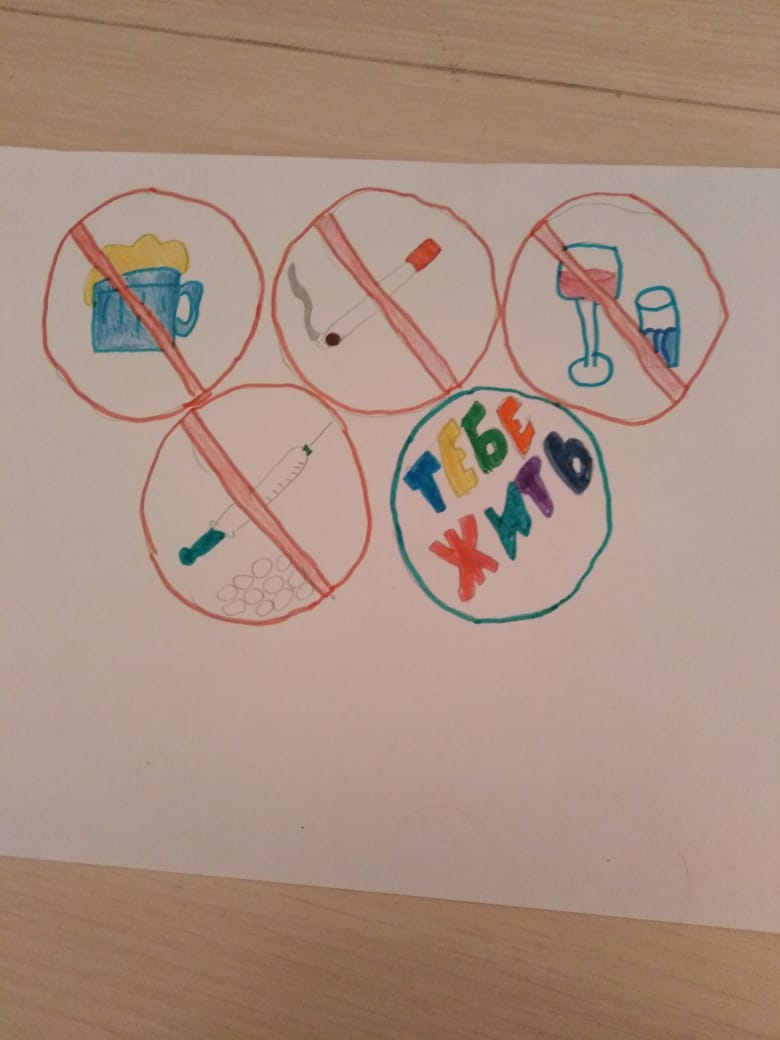 ТЕБЕ
ЖИТЬ